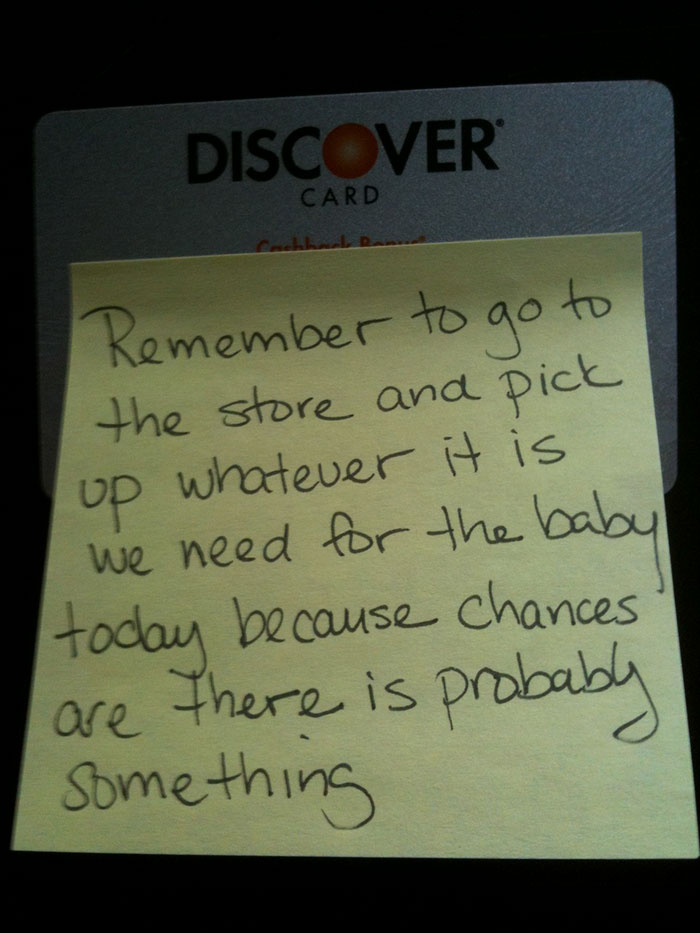 DISCOVER®
CARD
Cashback Bonus®
Remember to go to
the store and pick
up whatever it is
we need for the baby
today because chances
are there is probably
something